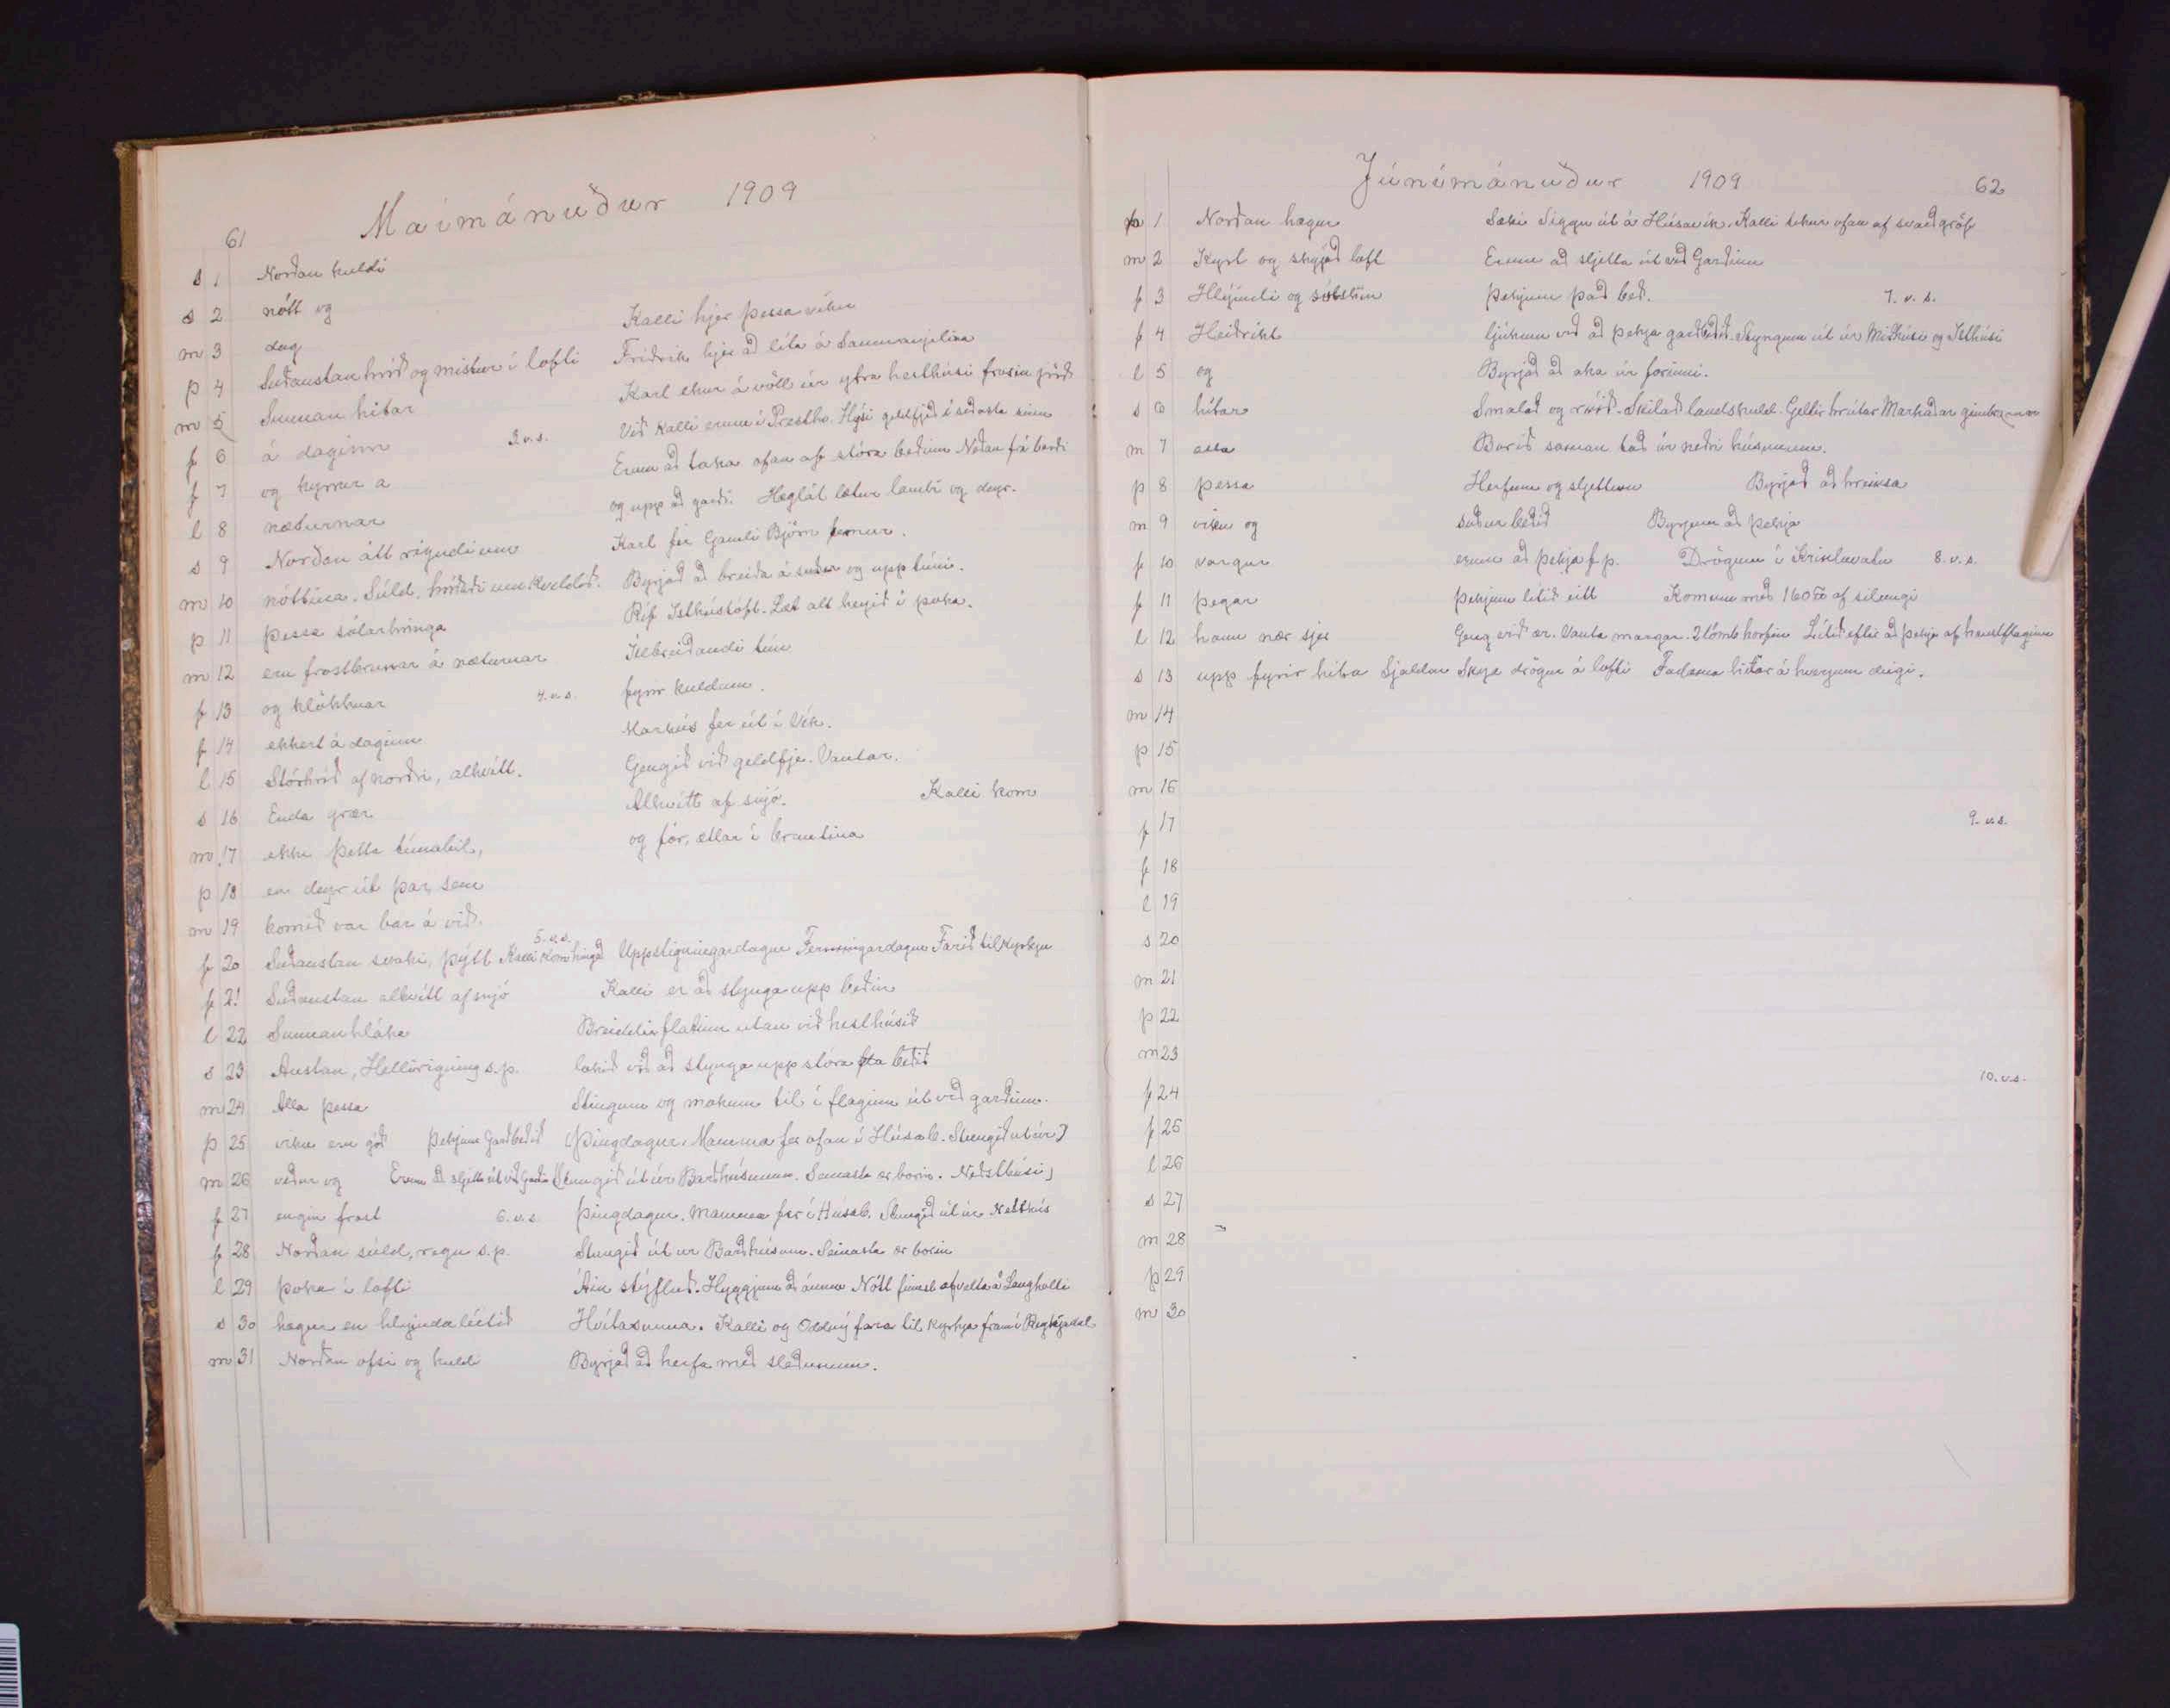 61
Maímánuður 1909
s 1 Norðan kuldi
s 2 nótt og Kalli hjer þessa viku
m 3 dag Friðrik hjer að líta á
þ 4 Suðaustan hríð og mistur í lofti Karl ekur á völl úr ytra hesthúsi frosin jörð
m 5 Sunnan hitar Við Kalli erum í Prestho. Hýsi geldfjeð í seðasta sinn
f 6 á daginn 3. v. s. Erum að taka ofan af stóra beðinu Neðan frá barði
f 7 og kyrrur a og upp að garði. Háglát lætur lambi og deyr.
l 8 næturnar Karl fer Gamli Björn kemur.
s 9 Norðan átt rigndi um Byrjað að breiða á suður og upp túni.
m 10 nóttina. Súld, hríðaði um kveldið. Ríf Isthústóft. Læt alt heyið í poka.
þ 11 þessa sólarhringa Ílbreiðandi tún
m 12 eru frostbrunar á næturnar fyrir kuldum.
f 13 og klökknar 4. v. s. Markús fer út í Vík.
f 14 ekkert á daginn Gengið við geldfje. Vantar.
l 15 Stórhríð af norðri, alhvítt. Alhvítt af snjó. Kalli kom
s 16 Enda grær og fór, ætlar í brautina
m 17 ekki þetta túnabil,
þ 18 en deyr út þar sem
m 19 komið var bar á við.
f 20 Suðaustan svaki, þýtt Kalli kom hingað 5. v. s. Uppstigningardagur Fermingardagur Farið til kyrkju
f 21 Suðaustan alhvítt af snjó Kalli er að stynga upp beðin
l 22 Sunnan hláka Breiddir flatinn utan við hesthúsið
s 23 Austan, Hellirigning s. p. lokið við að stynga upp stóra beðið
m 24 Alla þessa Stingum og mokum til í flaginu út við garðinn.
þ 25 viku eru góð þekjum Garðbeðið (Þingdagur. Mamma fer ofan í Húsab. Stungið út úr)
m 26 veður og Erum að sljetta út við Garðin (Stungið út úr Barðhúsunum. Seinasta er borin. Neðsthúsi)
f 27 engin frost 6. v. s. Þingdagur. Mamma fer í Húsab. Stungið út úr Neðsthús
f 28 Norðan súld, regn s. p. Stungið út úr Barðhúsum. Seinasta er borin
l 29 þoka í lofti Áin stýfluð. Hyggjum að ánum Nótt finst afvelta á Langholti
s 30 hægur en hlyindalítið Hvítasunna. Kalli og Oddný fara til kyrkju fram í Reykjadal
m 31 Norðan ofsi og kuldi Byrjað að herfa með sleðunum.
Júnímánuður 1909 62
þ 1 Norðan hægur Sæki Siggu út á Húsavík. Kalli tekur ofan af svarðgröf
m 2 Kyrt og skyjað loft Erum að sljetta út við Garðinn
f 3 Hlýindi og sólskin Þekjum það beð. 7. v. s.
f 4 Heiðrikt ljúkum við að þekja garðbeðið. Styngum út úr Miðhúsi og Isthúsi
l 5 og Byrjað að aka úr forinni.
s 6 hitar Smalað og rúið. Skilað landskuld. Gellir hrútar Markaðar gimbrarnar
m 7 alla Borið saman tað úr neðri húsunum.
þ 8 þessa Herfum og sljettum Byrjað að hreinsa
m 9 viku og suður beðið Byrjum að þekja
f 10 vargur erum að þekja f. p. Drögum í Kristnvatn 8. v. s.
f 11 þegar þekjum lítið eitt Komum með 160 af silungi
l 12 hann nær sjer Geng við ær. Vanta margar. 2 lömb horfin Lítið eftir að þekja af haustflaginu
s 13 upp fyrir hita Sjaldan Skýa drögur á lofti Fádæma hitar á hverjum deigi.
m 14
þ 15
m 16
f 17 9. v. s.
f 18
l 19
s 20
m 21
þ 22
m 23
f 24 10. v. s.
f 25
l 26
s 27
m 28
þ 29
m 30